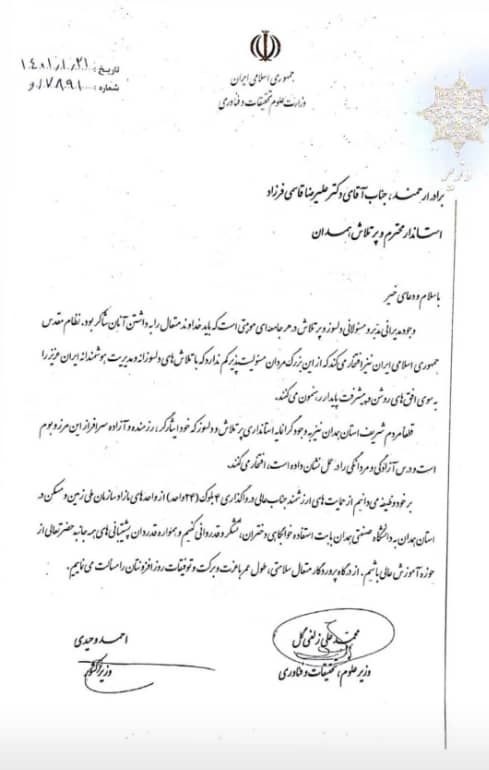 جمهوری اسلامی ایران
وزارت علوم تحقیقات و فناوری
تاریخ : ۱۴۰۱/۱/۲۱
شماره : و/۱۷۸۹۱
وزیر
برادر ارجمند، جناب آقای دکتر علیرضا قاسمی فرزاد
استاندار محترم و پرتلاش همدان
با سلام و دعای خیر
وجود مدیرانی مدبر و مسئولانی دلسوز و پرتلاش در هر جامعه‌ای موهبتی است که باید خداوند متعال را به داشتن آنان شاکر بود. نظام مقدس
جمهوری اسلامی ایران نیز افتخار می‌کند که از این بزرگ مردان مسئولیت پذیر کم ندارد که با تلاش‌های دلسوزانه و مدیریت هوشمندانه ایران عزیز را
به سوی افق‌های روشن و پیشرفت پایدار رهنمون می‌کنند.
قطعا مردم شریف استان همدان نیز به وجود گرانمایه استانداری پرتلاش و دلسوز که خود ایثارگر، رزمنده و آزاده سرافراز این مرز و بوم
است و درس آزادگی و مردانگی را در عمل نشان داده است، افتخار می‌کنند.
بر خود وظیفه می‌دانیم از حمایت‌های ارزشمند جناب عالی در واگذاری ۴ بلوک (۲۴ واحد) از واحدهای مازاد سازمان ملی زمین و مسکن در
استان همدان به دانشگاه صنعتی همدان بابت استفاده خوابگاهی دختران، تشکر و قدردانی کنیم و همواره قدردان پشتیبانی‌های همه جانبه حضرتعالی از
حوزه آموزش عالی باشیم. از درگاه پروردگار متعال سلامتی، طول عمر با عزت و برکت و توفیقات روز افزونتان را مسالت می‌نماییم.
محمد علی زلفی گل
وزیر علوم، تحقیقات و فناوری
احمد وحیدی
وزیر کشور